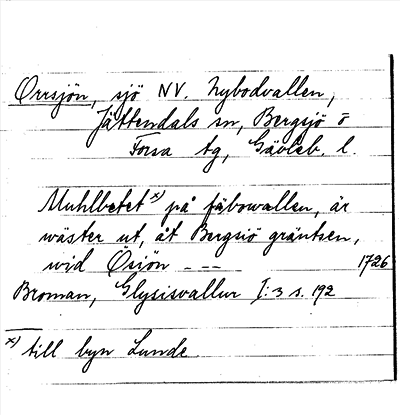 Orrsjön, sjö NV. Nybodvallen,
Jättendals sn, Bergsjö o
Forsa tg, Gävleb. l.
Muhlbetet x) på fäbowallen, är
wäster ut, åt Bergsiö gräntsen,
wid Ösiön - -- 1726
Broman, Glysisvallur I:3 s. 192
x) till byn Lunde